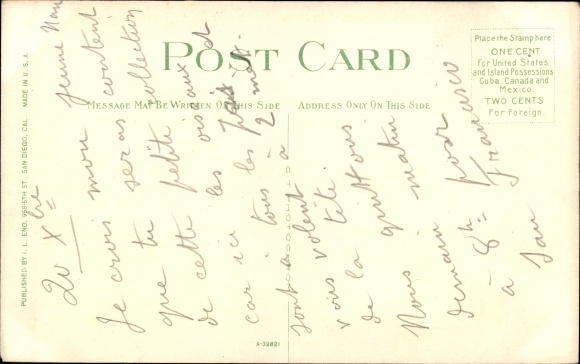 POST CARD
Place the Stamp here
ONE CENT
For United States
and Island Possessions
Cuba, Canada and
Mexico.
TWO CENTS
For Foreign.
MESSAGE MAY BE WRITTEN ON THIS SIDE
ADDRESS ONLY ON THIS SIDE
PUBLISHED BY I. L. ENO, 958-5TH ST. SAN DIEGO, CAL. MADE IN U. S. A.
A-32821
20 Xbre
Je crois mon jeune
que tu seras content
de cette petite collection
car ici les oiseaux et
tous les
sont à 2
vous volent à
de la tête.
Nous quittons
demain matin
8h pour
à San Francisco